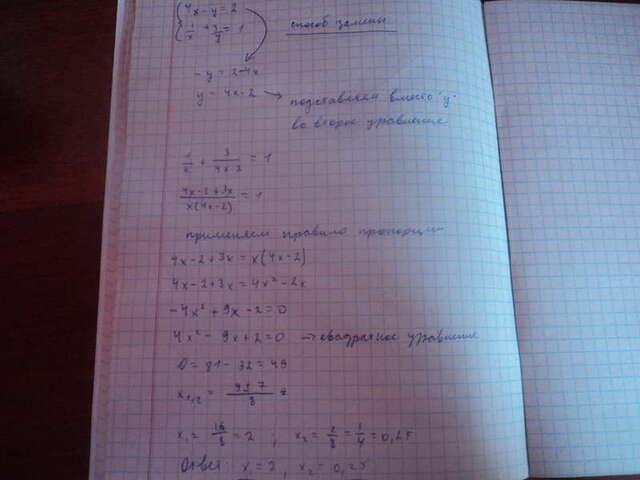 4x-y=2
1/x + 3/y = 1
способ замены
-y = 2-4x
y = 4x-2 → подставляем вместо "y"
во второе уравнение
1/x + 3/(4x-2) = 1
(4x-2+3x)/(x(4x-2)) = 1
применяем правило пропорции
4x-2+3x = x(4x-2)
4x-2+3x = 4x²-2x
-4x²+9x-2=0
4x²-9x+2=0 → квадратное уравнение
D=81-32=49
x₁,₂ = (9±7)/8
x₁ = 16/8 = 2 ; x₂ = 2/8 = 1/4 = 0,25
Ответ: x₁=2, x₂=0,25